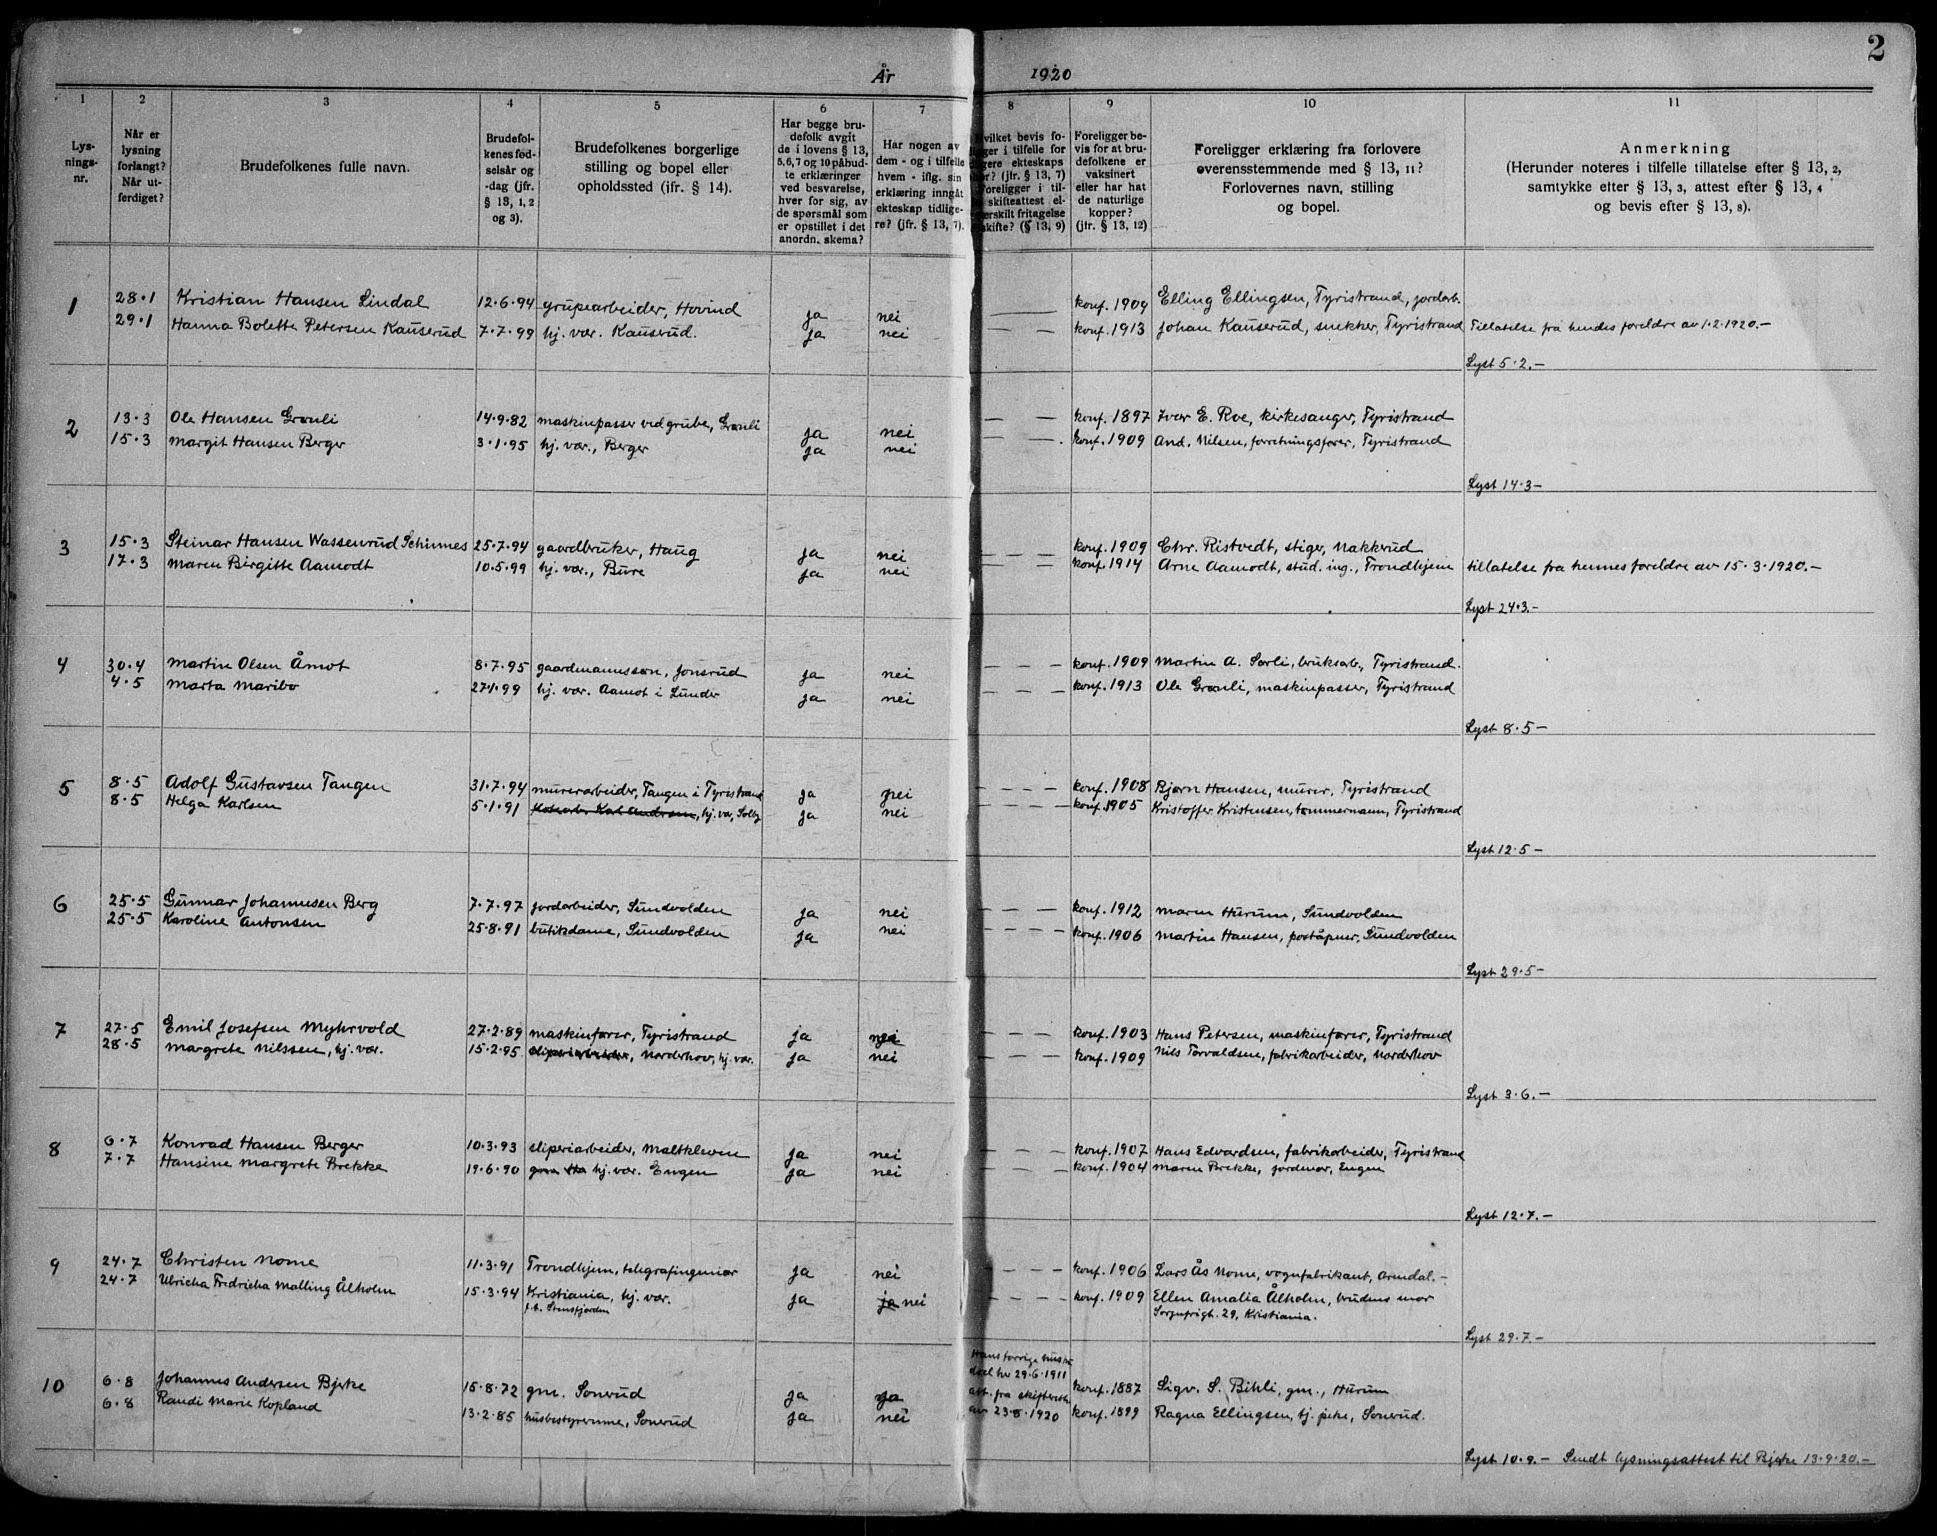 2
År 1920
1 2 3 4 5 6 7 8 9 10 11
Lysnings-nr.
Når er lysning forlangt? Når utferdiget?
Brudefolkenes fulle navn.
Brudefolkenes fødselsår og -dag (jfr. § 13, 1, 2 og 3).
Brudefolkenes borgerlige stilling og bopel eller opholdssted (jfr. § 14).
Har begge brudefolk avgit de i lovens § 13, 5, 6, 7 og 10 påbudte erklæringer ved besvarelse, hver for sig, av de spørsmål som er opstillet i det anordn. skema?
Har nogen av dem - og i tilfelle hvem - iflg. sin erklæring inngått ekteskap tidligere? (jfr. § 13, 7).
Foreligger bevis for at brudefolkene er vaksinert eller har hat de naturlige kopper? (jfr. § 13, 12)
Foreligger erklæring fra forlovere overensstemmende med § 13, 11? Forlovernes navn, stilling og bopel.
Anmerkning (Herunder noteres i tilfelle tillatelse efter § 13, 2, samtykke efter § 13, 3, attest efter § 13, 4 og bevis efter § 13, 8).
1 28·1 Kristian Hansen Lindal 12·6·94 grupearbeider, Hovind ja nei — konf. 1909 Elling Ellingsen, Tyristrand, jordarb.
29·1 Hanna Bolette Petersen Kauserud 7·7·99 hj. vær. Kauserud. ja nei — — konf. 1913 Johan Kauserud, snekker, Tyristrand Tillatelse fra hendes foreldre av 1·2·1920.—
Lyst 5·2.—
2 13·3 Ole Hansen Grønli 14·9·82 maskinpasser ved grube, Grønli ja nei — — konf. 1897 Iver E. Roe, kirkesanger, Tyristrand
15·3 Margit Hansen Berger 3·1·95 hj. vær., Berger ja nei — — konf. 1909 And. Nilsen, forretningsfører, Tyristrand
Lyst 14·3—
3 15·3 Steinar Hansen Wassenrud Schinnes 25·7·94 gaardbruker, Haug ja nei — — — konf. 1909 Chr. Ristvedt, stiger, Nakkerud
17·3 Maren Birgitte Aamodt 10·5·99 hj. vær., Bure ja nei — — konf. 1914 Arne Aamodt, stud. ing., Trondhjem tillatelse fra hennes foreldre av 15·3·1920.—
Lyst 24·3.—
4 30·4 Martin Olsen Åmot 8·7·95 gaardmannssøn, Jonsrud ja nei — — — konf. 1909 Martin A. Sørli, bruksarb., Tyristrand.
4·5 Marta Maribo 27·1·99 hj. vær. Aamot i Lunder ja nei — — — konf. 1913 Ole Grønli, maskinpasser, Tyristrand
Lyst 8·5—
5 8·5 Adolf Gustavsen Tangen 31·7·94 murerarbeider, Tangen i Tyristrand ja nei — — — konf. 1908 Bjørn Hansen, murer, Tyristrand
8·5 Helga Karlsen 5·1·91 hj. vær, Solby ja nei — — — konf. 1905 Kristoffer Kristensen, tømmermann, Tyristrand
Lyst 12·5—
6 25·5 Gunnar Johannesen Berg 7·7·97 jordarbeider, Sundvolden ja nei — — — konf. 1912 Maren Hurum, Sundvolden
25·5 Karoline Antonsen 25·8·91 butikdame, Sundvolden ja nei — — — konf. 1906 Martin Hansen, poståpner, Sundvolden
Lyst 29·5—
7 27·5 Emil Josefsen Myhrvold 27·2·89 maskinfører, Tyristrand ja nei — — — konf. 1903 Hans Petersen, maskinfører, Tyristrand
28·5 Margrete Nilssen, hj. vær. 15·2·95 sliperiarbeider, Norderhov, hj. vær. ja nei — — — konf. 1909 Nils Torvaldsen, fabrikarbeider, Norderhov
Lyst 3·6.—
8 6·7 Konrad Hansen Berger 10·3·93 sliperiarbeider, Maltkleven ja nei — — — konf. 1907 Hans Edvardsen, fabrikarbeider, Tyristrand
7·7 Hansine Margrete Brekke 19·6·90 hj. vær. Engen ja nei — — — konf. 1904 Maren Brekke, jordmor, Engen
Lyst 12·7.—
9 24·7 Christen Nome 11·3·91 Trondhjem, telegrafingeniør ja nei — — — konf. 1906 Lars Ås Nome, vognfabrikant, Arendal.—
24·7 Ulricha Fredricha Malling Ålholm 15·3·94 Kristiania, hj. vær. ja ja nei — — — konf. 1909 Ellen Amalia Ålholm, brudens mor
f.t. Stensfjorden Sorgenfrigt. 29, Kristiania.
Lyst 29·7.—
10 6·8 Johannes Andersen Bjerke 15·8·72 gm. Sonerud ja ja konf. 1887 Sigv. S. Bihli, gm., Hurum
6·8 Randi Marie Kopland 13·2·85 husbestyrerinne, Sonerud ja nei konf. 1899 Ragna Ellingsen, tj. pike, Sonerud.
Hans forrige hustru død her 29·6·1911 att. fra skifterett. av 23·8·1920
Lyst 10·9.— Sendt lysningsattest til Bjerke 13·9·20.—